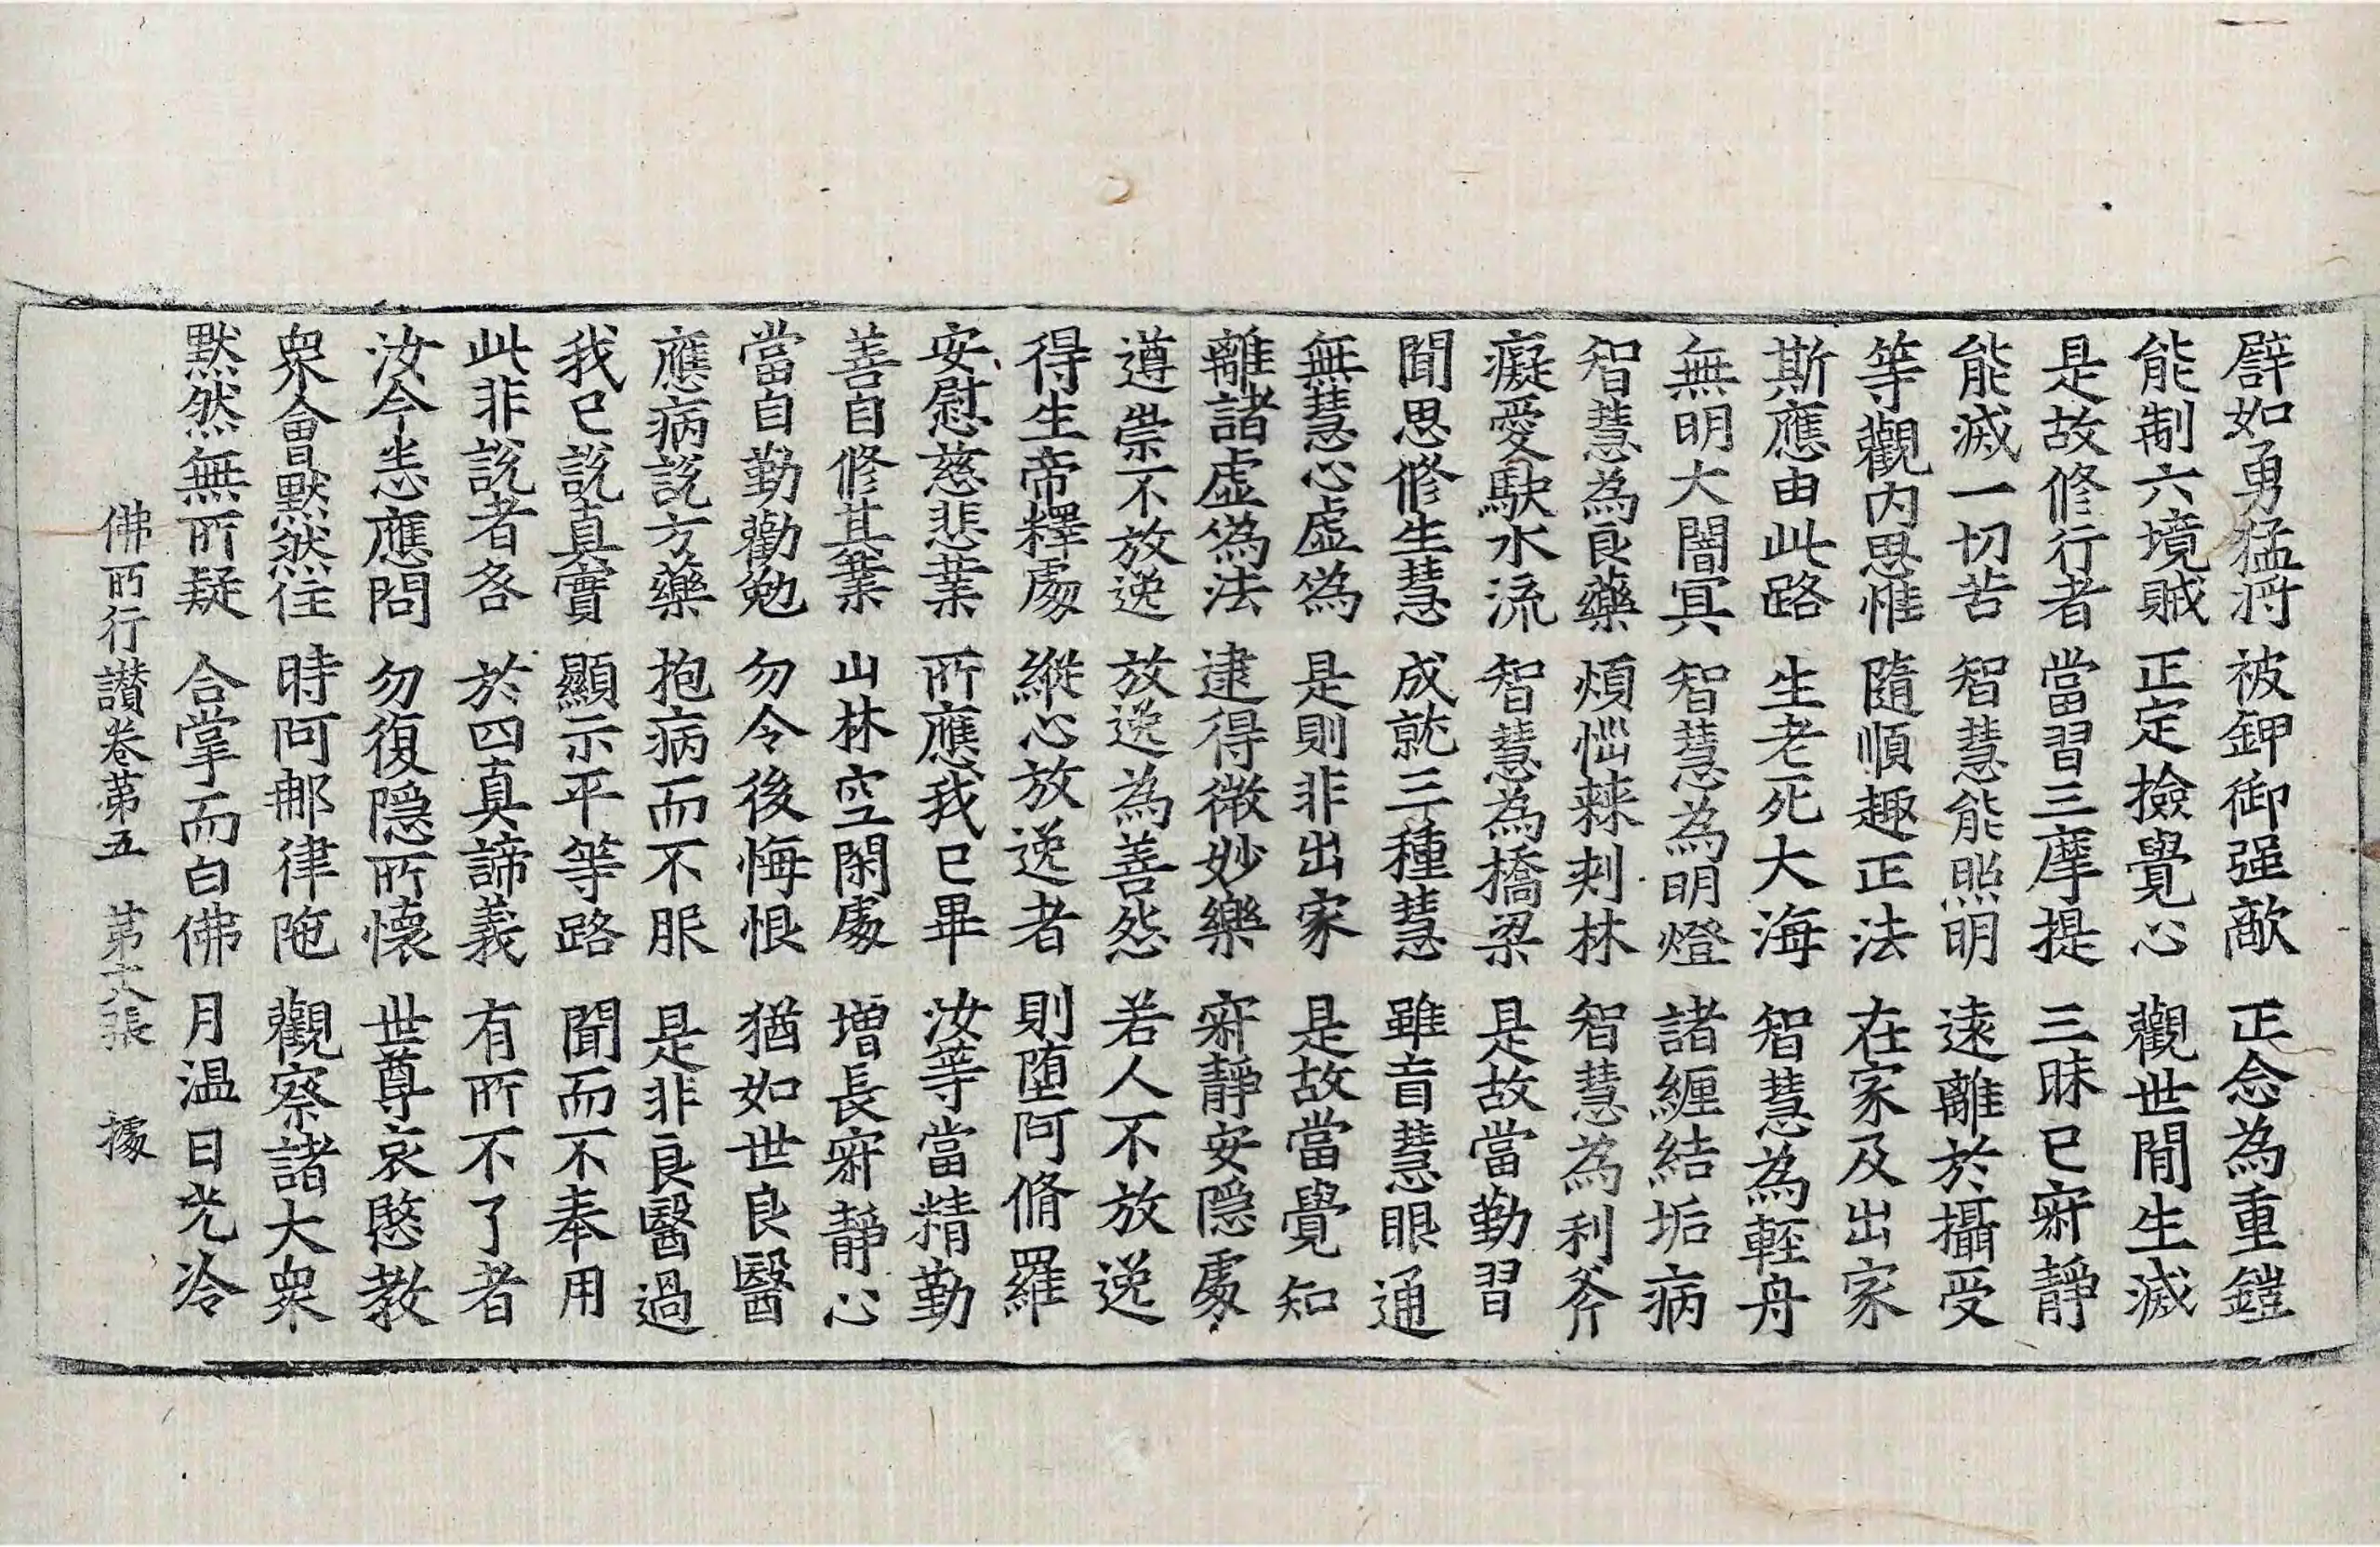 礕如勇猛将 被鉀御强敵 正念為重鎧
能制六境賊 正定撿覺心 觀世閒生滅
是故修行者 當習三摩提 三昧已寂靜
能滅一切苦 智慧能照明 遠離於攝受
等觀内思惟 隨順趣正法 在家及出家
斯應由此路 生老死大海 智慧為輕舟
無明大闇冥 智慧為明燈 諸纏結垢病
智慧為良藥 煩惱棘刺林 智慧為利斧
癡愛駃水流 智慧為橋梁 是故當勤習
聞思修生慧 成就三種慧 雖盲慧眼通
無慧心虛偽 是則非出家 是故當覺知
離諸虛偽法 逮得微妙樂 寂靜安隱處
遵崇不放逸 放逸為善怨 若人不放逸
得生帝釋處 縱心放逸者 則墮阿脩羅
安慰慈悲業 所應我已畢 汝等當精勤
善自修其業 山林空閑處 增長寂靜心
當自勤勸勉 勿令後悔恨 猶如世良醫
應病說方藥 抱病而不服 是非良醫過
我已說真實 顯示平等路 聞而不奉用
此非說者咎 於四真諦義 有所不了者
汝今悉應問 勿復隱所懷 世尊哀愍教
衆會默然住 時阿那律陁 觀察諸大衆
默然無所疑 合掌而白佛 月温日光冷
佛所行讃卷第五 第六張 據